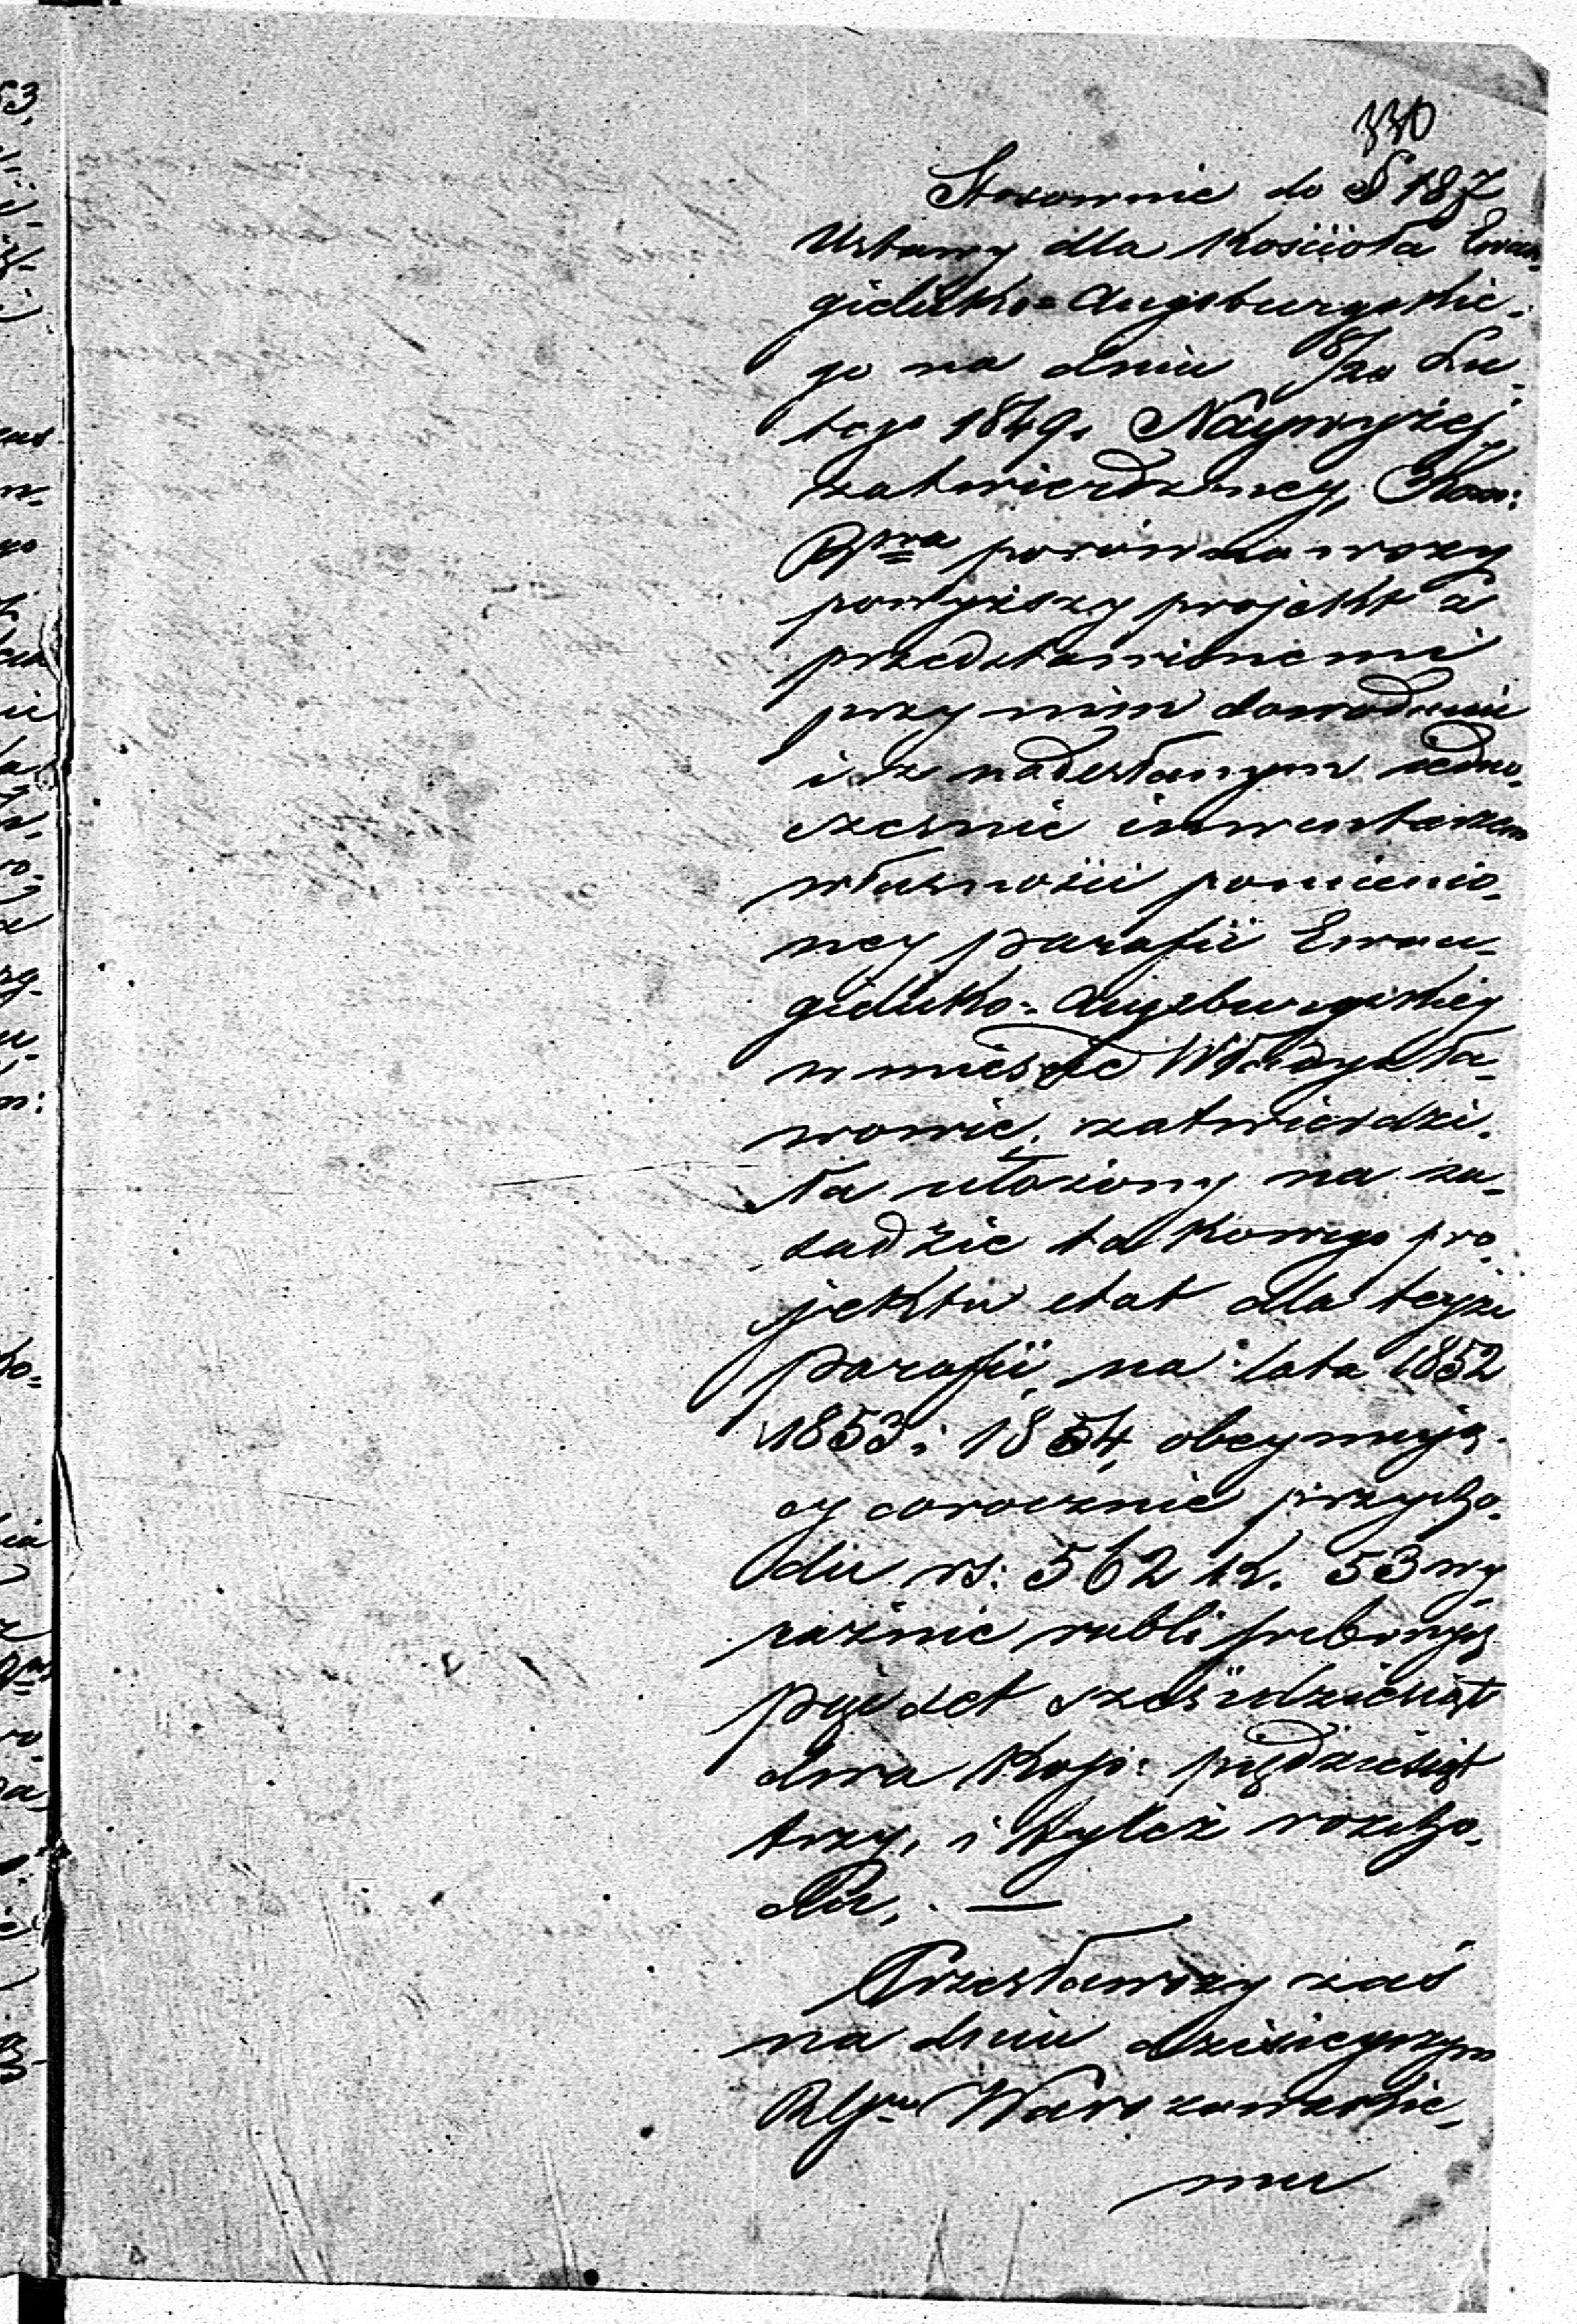 330
Stosownie do § 187
Ustawy dla Kościoła Ewan-
gielicko=Augsburgskie-
go na dniu 8/20 Lu-
tego 1849. Naywyżej
zatwierdzoney, Kom:
porównawszy
powyższy projekt z
przedstawionemi
przy nim dowodami
i z nadesłanym jedno-
cześnie inwentarzem
własności pomienio-
ney parafii Ewan-
gielicko=Augsburgskiey
w mieście Władysła-
wowie, zatwierdzi-
ła ułożony na za-
sadzie takowego pro-
jektu etat dla teyże
parafii, na lata 1852
1853 i 1854, obeymują-
cy corocznie przycho-
du rs: 562 k. 53 wy-
raźnie rubli srebrnych
pięćset sześćdziesiąt
dwa kop: pięćdziesiąt
trzy, i tyleż rozcho-
du, . —
Przesławszy zaś
na dniu dzisieyszym
Warszawskie-
mu